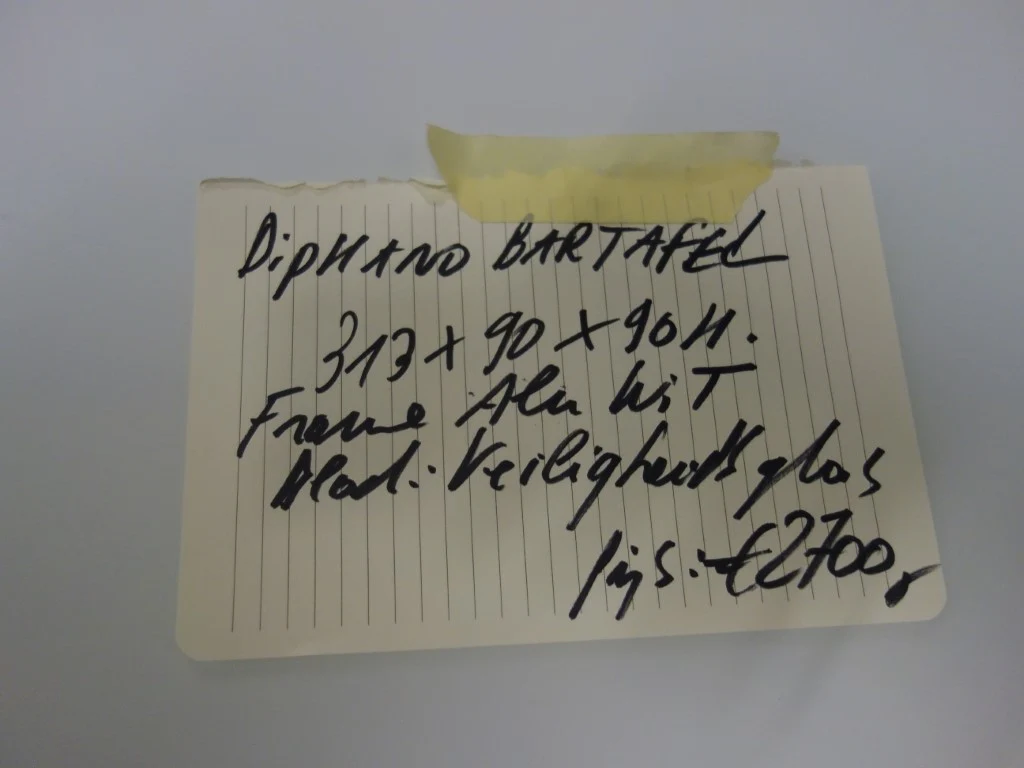 DipHANO BARTAFEL
313 x 90 x 90 H.
Frame Alu WiT
Blad: Veiligheids glas
prijs: €2700,